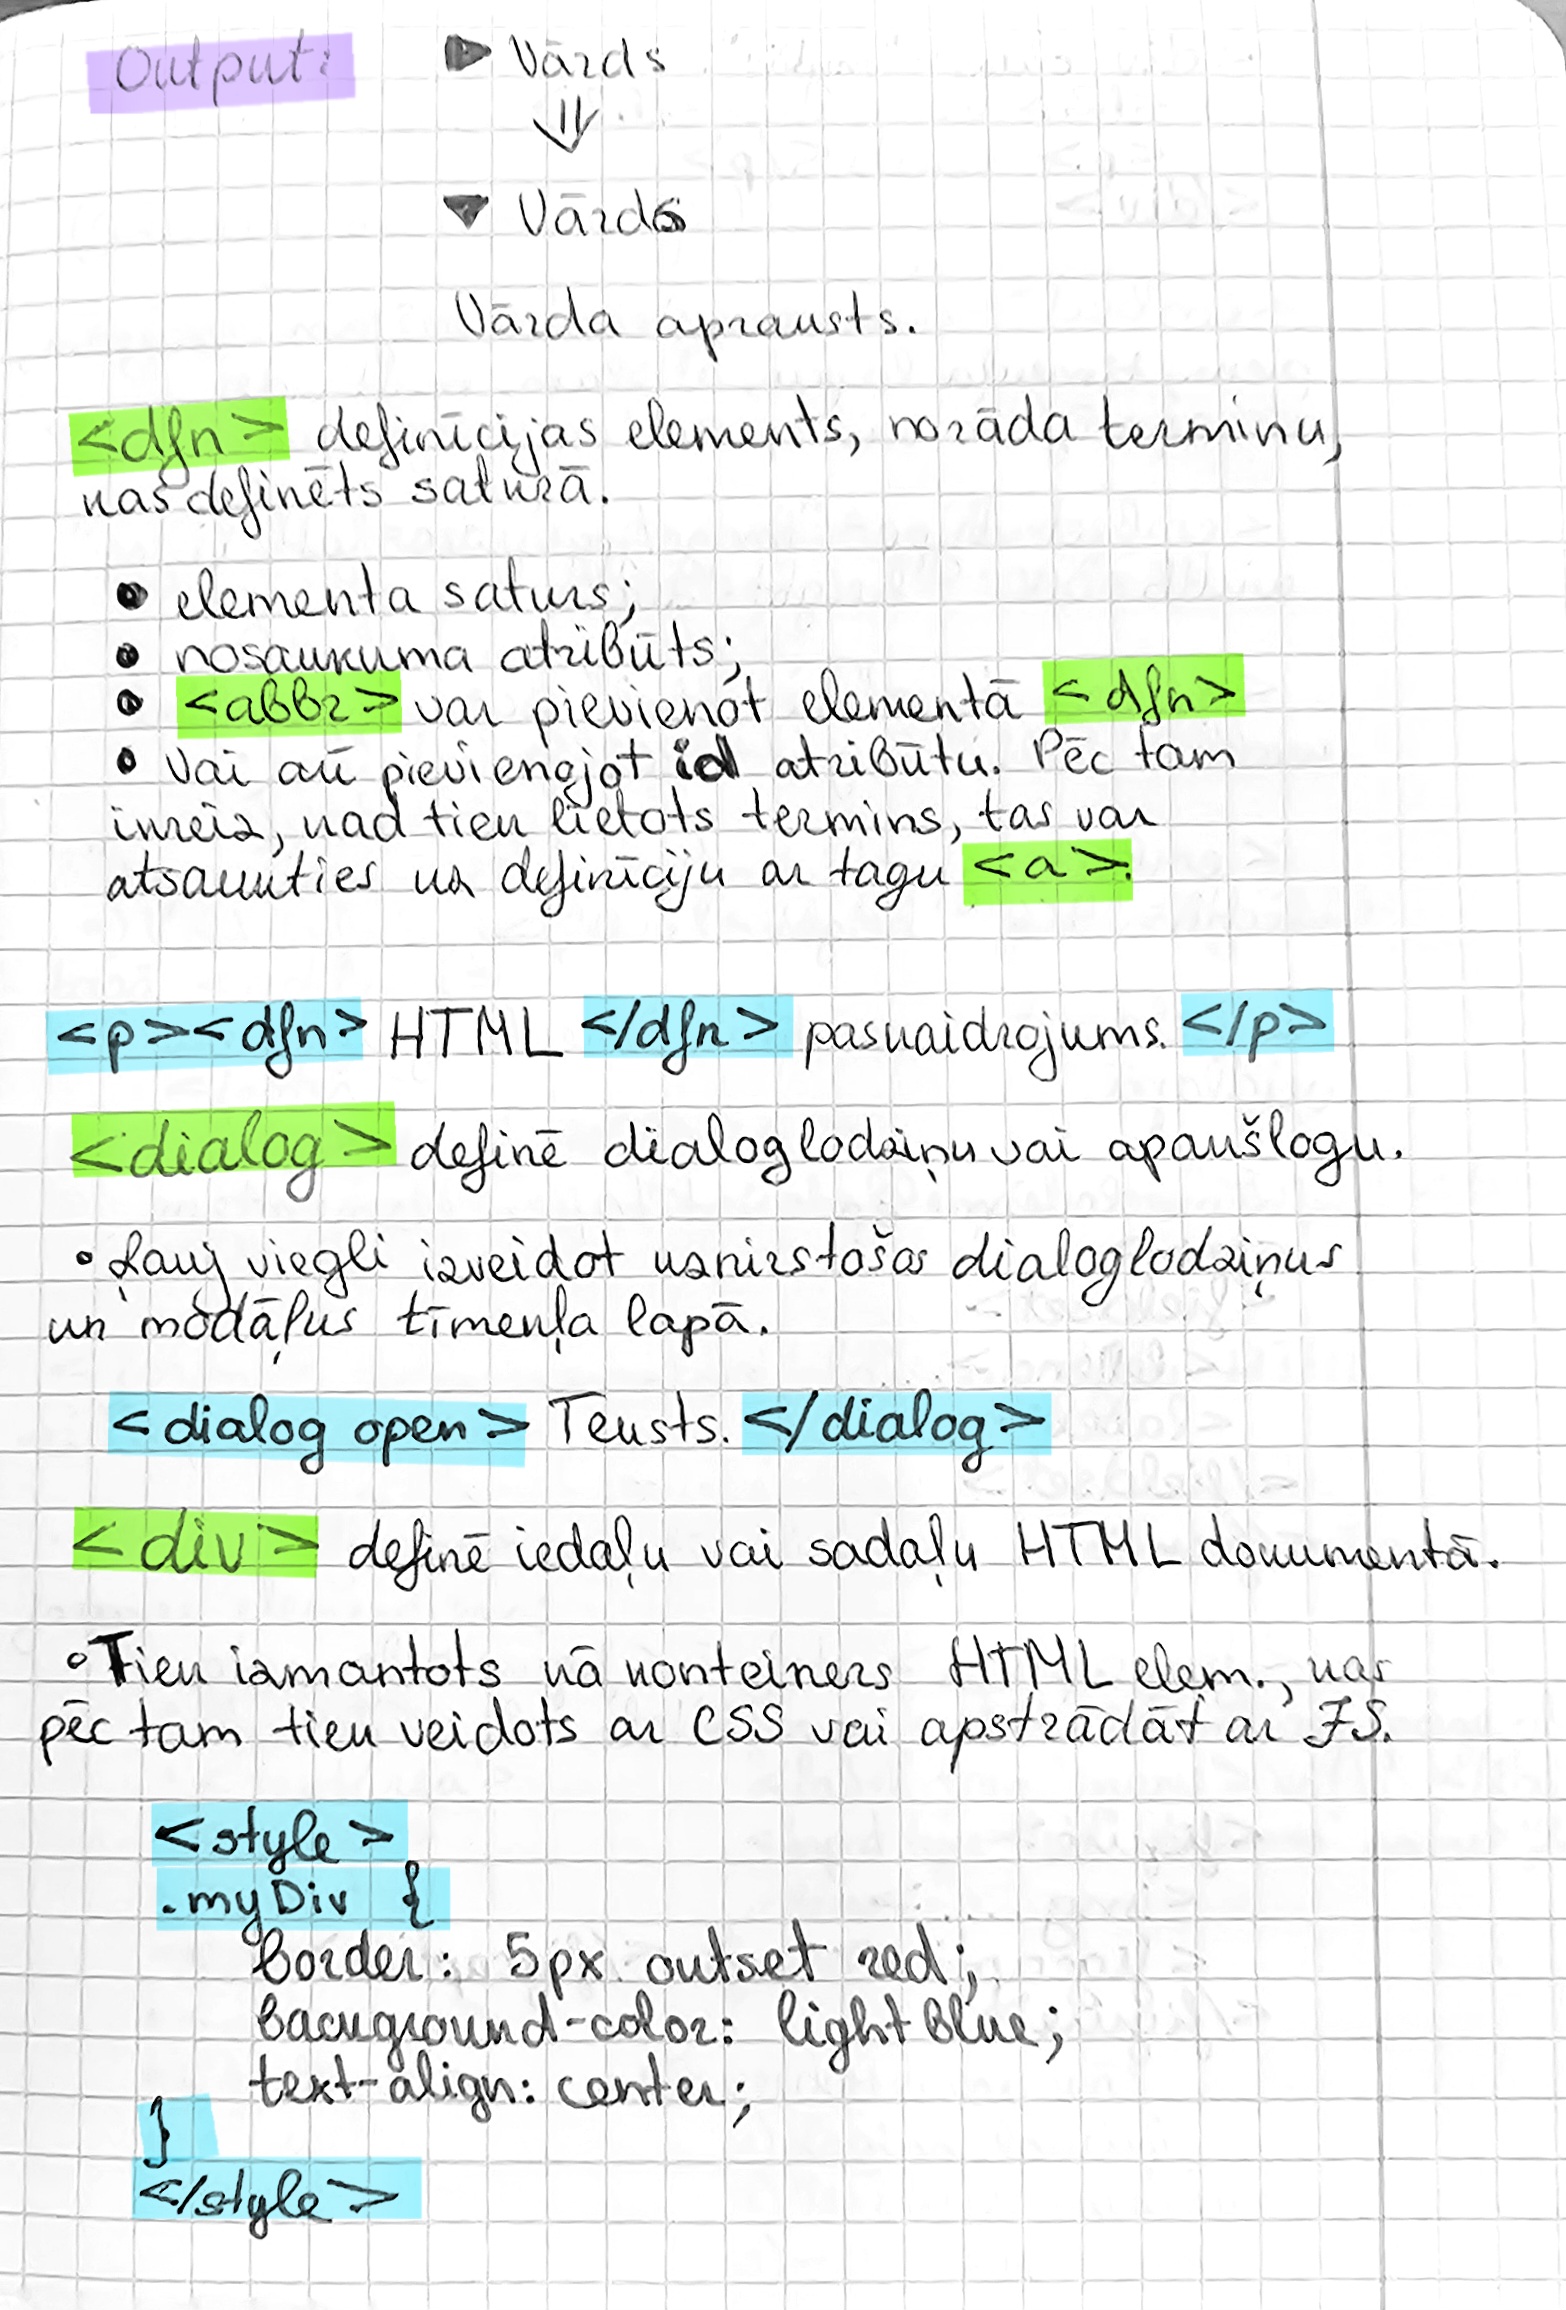 Output: ▶ Vārds
⇓
▼ Vārds
Vārda apraksts.
<dfn> definīcijas elements, norāda terminu,
kas definēts saturā.
• elementa saturs;
• nosaukuma atribūts;
• <abbr> var pievienot elementā <dfn>
• Vai arī pievienojot id atribūtu. Pēc tam
ikreiz, kad tiek lietots termins, tas var
atsaukties uz definīciju ar tagu <a>.
<p><dfn> HTML </dfn> paskaidrojums. </p>
<dialog> definē dialoglodziņu vai apakšlogu.
• Ļauj viegli izveidot uznirstošos dialoglodziņus
un modāļus tīmekļa lapā.
<dialog open> Teksts. </dialog>
<div> definē iedaļu vai sadaļu HTML dokumentā.
• Tiek izmantots kā konteiners HTML elem., kas
pēc tam tiek veidots ar CSS vai apstrādāt ar JS.
<style>
.myDiv {
border: 5px outset red;
background-color: lightblue;
text-align: center;
}
</style>